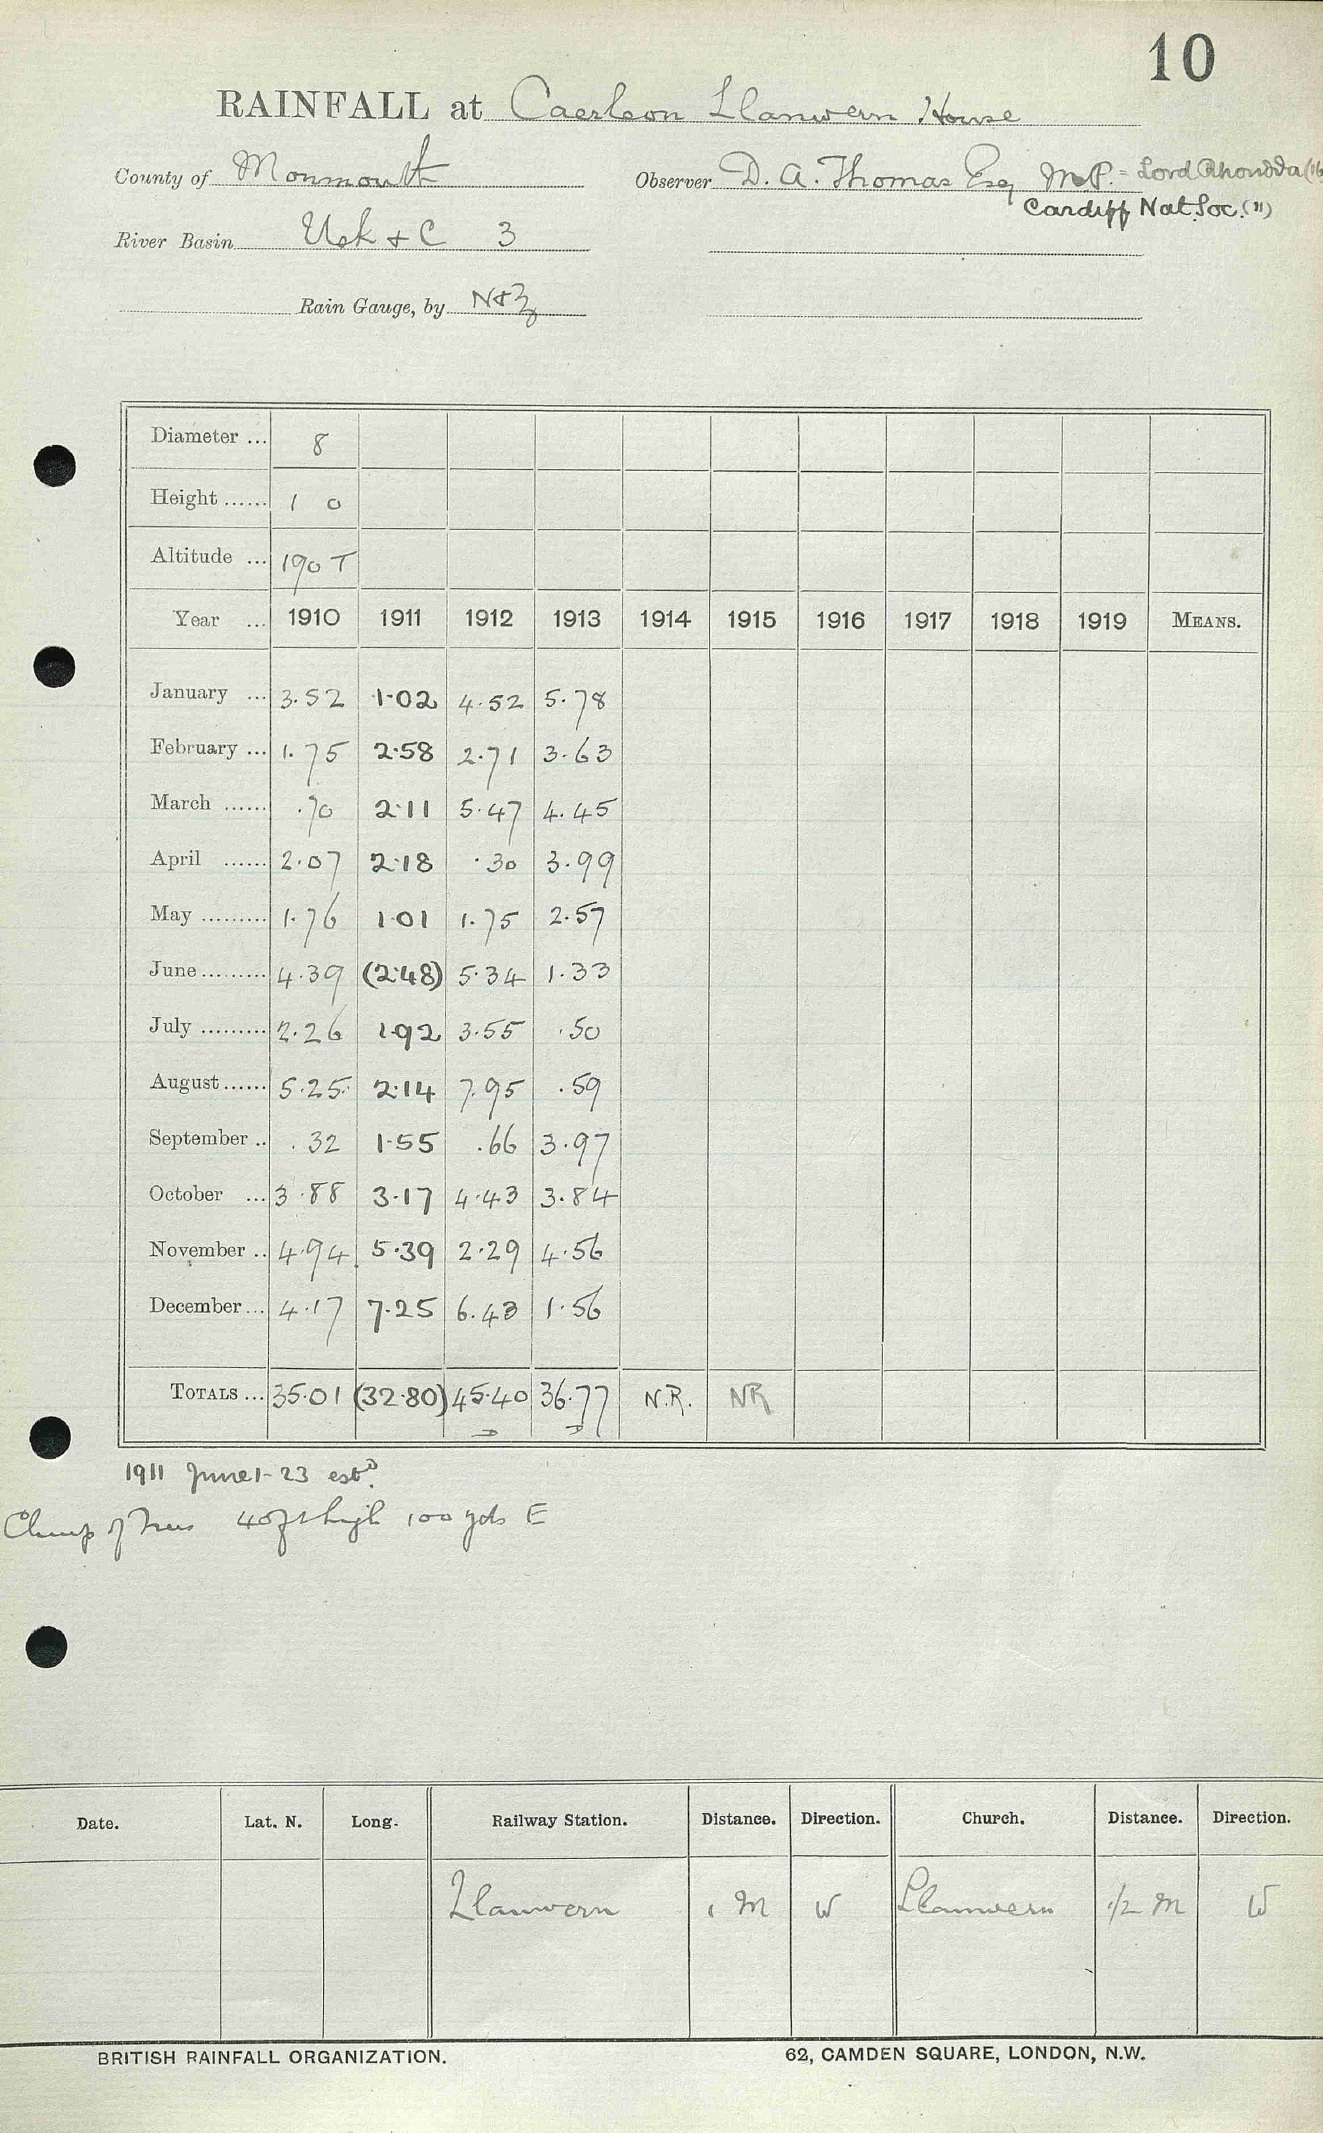 10
RAINFALL at Caerleon Llanwern House
County of Monmouth Observer D. A. Thomas Esq M.P. = Lord Rhondda (16
Cardiff Nat. Soc. (")
River Basin Usk + C 3
Rain Gauge, by N+Z
Diameter ... 8
Height ...... 1 0
Altitude ... 190 T
Year ... 1910 1911 1912 1913 1914 1915 1916 1917 1918 1919 MEANS.
January ... 3.52 1.02 4.52 5.78
February ... 1.75 2.58 2.71 3.63
March ...... .70 2.11 5.47 4.45
April ...... 2.07 2.18 .30 3.99
May ......... 1.76 1.01 1.75 2.57
June ......... 4.39 (2.48) 5.34 1.33
July ......... 2.26 1.92 3.55 .50
August ...... 5.25 2.14 7.95 .59
September .. .32 1.55 .66 3.97
October ... 3.88 3.17 4.43 3.84
November .. 4.94 5.39 2.29 4.56
December ... 4.17 7.25 6.43 1.56
TOTALS ... 35.01 (32.80) 45.40 36.77 N.R. NR
1911 June 1-23 estd.
Clump of Trees 40ft high 100 yds E
Date. Lat. N. Long. Railway Station. Distance. Direction. Church. Distance. Direction.
Llanwern 1 M W Llanwern 1/2 M W
BRITISH RAINFALL ORGANIZATION. 62, CAMDEN SQUARE, LONDON, N.W.